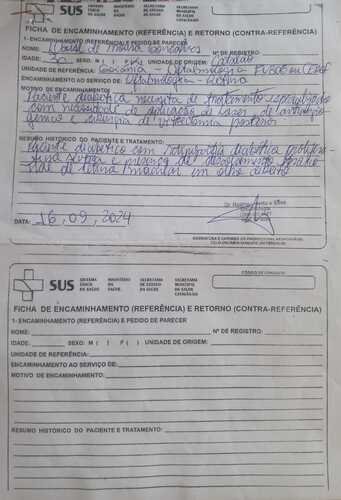 SUS
SISTEMA ÚNICO DE SAÚDE
MINISTÉRIO DA SAÚDE
SECRETARIA DE SAÚDE
FICHA DE ENCAMINHAMENTO (REFERÊNCIA) E RETORNO (CONTRA-REFERÊNCIA)
1- ENCAMINHAMENTO (REFERÊNCIA) E PEDIDO DE PARECER
NOME: de Nº DE REGISTRO:
IDADE: 30 SEXO: M ( ) UNIDADE DE ORIGEM: Catalão
UNIDADE DE REFERÊNCIA: Goiânia - Oftalmologia
ENCAMINHAMENTO AO SERVIÇO DE: Oftalmologia - Retina
MOTIVO DO ENCAMINHAMENTO:
Paciente diabética necessita de tratamento especializado
com necessidade de aplicação de laser, de antiangio-
gênico e cirurgia de vitrectomia posterior
RESUMO HISTÓRICO DO PACIENTE E TRATAMENTO:
Paciente diabético com retinopatia diabética prolifera-
tiva e presença de descolamento tracio-
nal de retina macular em olho
DATA: 16, 09, 2024
ASSINATURA E CARIMBO DO PROFISSIONAL RESPONSÁVEL
PELO ENCAMINHAMENTO (REFERÊNCIA)
CÓDIGO DA UNIDADE
SUS
SISTEMA ÚNICO DE SAÚDE
MINISTÉRIO DA SAÚDE
SECRETARIA DA SAÚDE
SECRETARIA MUNICIPAL DE SAÚDE CATALÃO/GO
FICHA DE ENCAMINHAMENTO (REFERÊNCIA) E RETORNO (CONTRA-REFERÊNCIA)
1- ENCAMINHAMENTO (REFERÊNCIA) E PEDIDO DE PARECER
NOME: Nº DE REGISTRO:
IDADE: SEXO: M ( ) F ( ) UNIDADE DE ORIGEM:
UNIDADE DE REFERÊNCIA:
ENCAMINHAMENTO AO SERVIÇO DE:
MOTIVO DO ENCAMINHAMENTO:
RESUMO HISTÓRICO DO PACIENTE E TRATAMENTO: